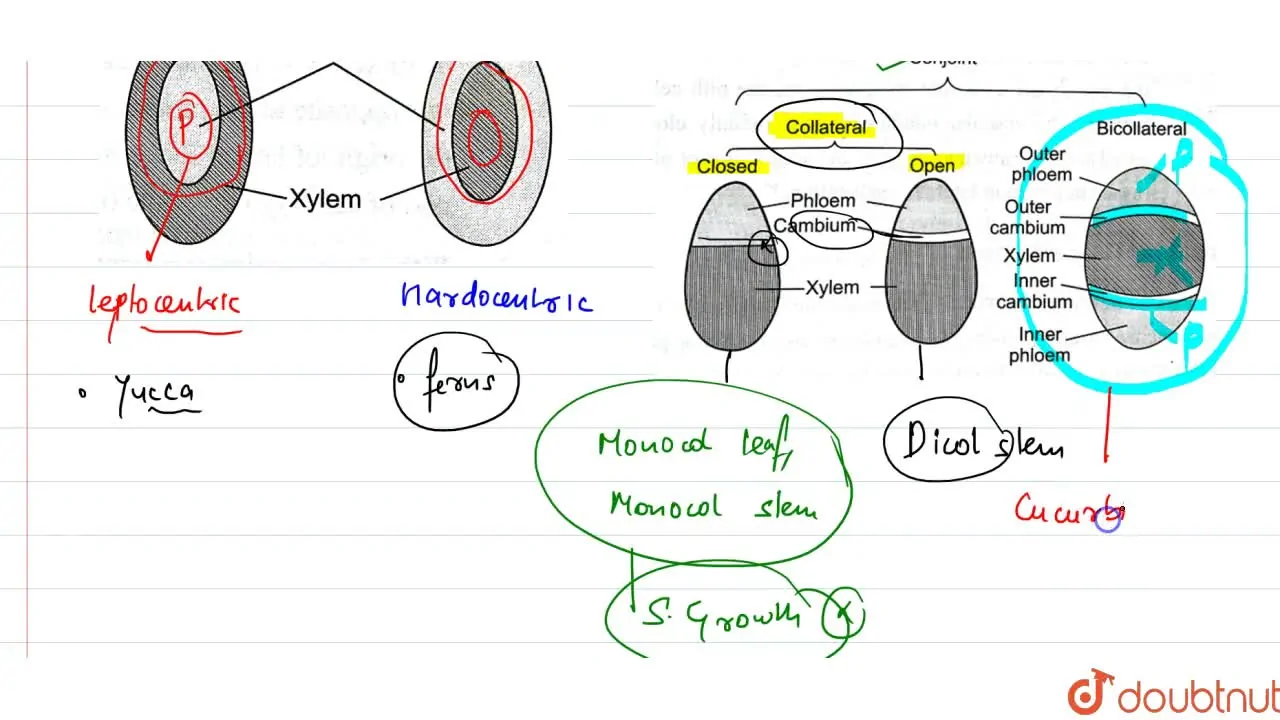 Conjoint
Collateral
Bicollateral
Closed
Open
Outer
phloem
Phloem
Outer
cambium
Cambium
Xylem
Xylem
Inner
cambium
Xylem
Inner
phloem
P
P
P
leptocentric
Hardocentric
• Yucca
• ferns
Monocot leaf,
Monocot stem
Dicot stem
Cucurbi
S. Growth x
doubtnut